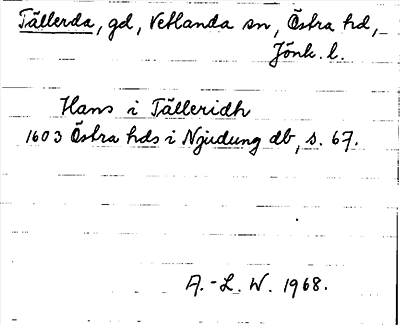 Tällerda, gd, Vetlanda sn, Östra hd,
Jönk. l.
Hans i Tälleridh
1603 Östra hds i Njudung db, s. 67.
A.-L. W. 1968.